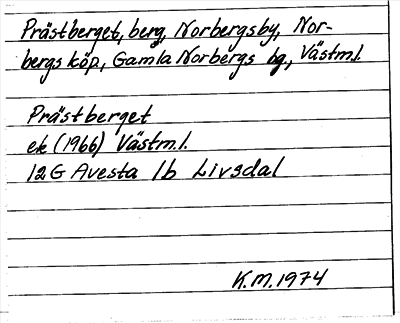 Prästberget, berg, Norbergsby, Nor-
bergs köp, Gamla Norbergs bg, Västml.
Prästberget
ek (1966) Västml.
12G Avesta 1b Livsdal
K.M. 1974